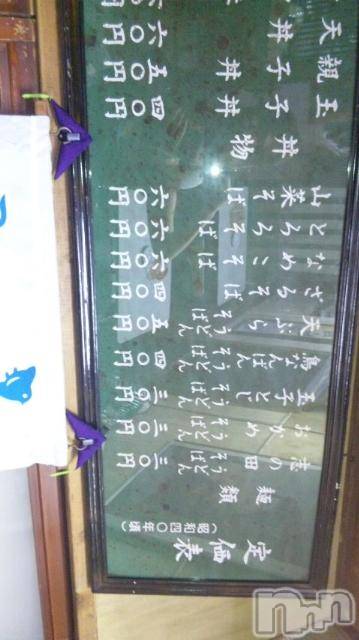 定価表
(昭和四〇年頃)
麺類
志の田そばうどん 三〇円
おかめそばうどん 三〇円
玉子とじそばうどん 三〇円
鳥なんばんそばうどん 四〇円
天ぷらそばうどん 五〇円
ざるそば 四〇円
なめこそば 六〇円
とろろそば 六〇円
山菜そば 六〇円
丼物
玉子丼 四〇円
親子丼 五〇円
天丼 六〇円